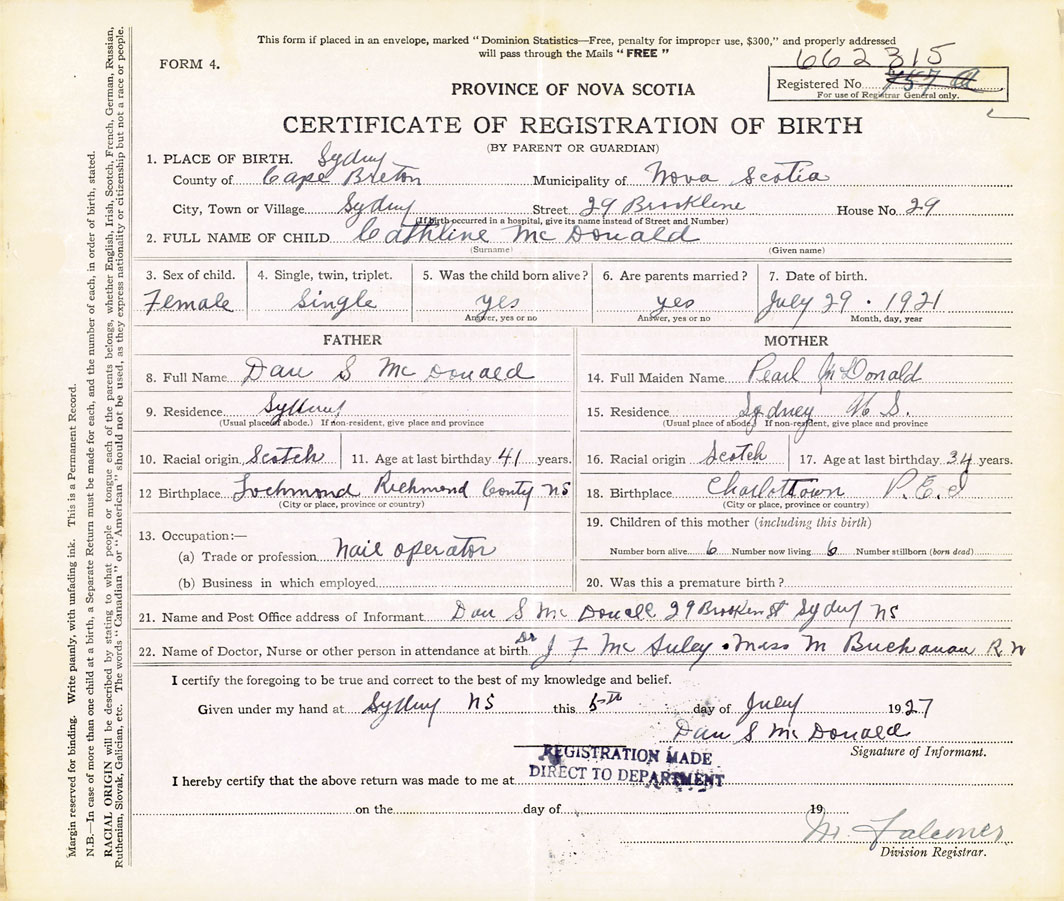 This form if placed in an envelope, marked "Dominion Statistics—Free, penalty for improper use, $300," and properly addressed
will pass through the Mails "FREE"
FORM 4.
662315
Registered No.
For use of Registrar General only.
PROVINCE OF NOVA SCOTIA
CERTIFICATE OF REGISTRATION OF BIRTH
(BY PARENT OR GUARDIAN)
1. PLACE OF BIRTH. Sydny
County of Cape Breton Municipality of Nova Scotia
City, Town or Village Sydny Street 29 Brookline House No. 29
(If birth occurred in a hospital, give its name instead of Street and Number)
2. FULL NAME OF CHILD Cathline McDonald
(Surname) (Given name)
3. Sex of child. 4. Single, twin, triplet. 5. Was the child born alive? 6. Are parents married? 7. Date of birth.
Female Single yes yes July 29 · 1921
Answer, yes or no Answer, yes or no Month, day, year
FATHER MOTHER
8. Full Name Dan S McDonald 14. Full Maiden Name Pearl McDonald
9. Residence Sydny 15. Residence Sydney N.S.
(Usual place of abode.) If non-resident, give place and province (Usual place of abode.) If non-resident, give place and province
10. Racial origin Scotch 11. Age at last birthday 41 years. 16. Racial origin Scotch 17. Age at last birthday 34 years.
12 Birthplace Lochmond Richmond County NS 18. Birthplace Charlottown P.E.I
(City or place, province or country) (City or place, province or country)
13. Occupation:— 19. Children of this mother (including this birth)
(a) Trade or profession Nail operator Number born alive 6 Number now living 6 Number stillborn (born dead)
(b) Business in which employed 20. Was this a premature birth?
21. Name and Post Office address of Informant Dan S McDonald 29 St Sydny NS
22. Name of Doctor, Nurse or other person in attendance at birth Dr J F McAuley · Miss M Buchanan R.N
I certify the foregoing to be true and correct to the best of my knowledge and belief.
Given under my hand at Sydny NS this 5th day of July 1927
Dan S McDonald
Signature of Informant.
REGISTRATION MADE
DIRECT TO DEPARTMENT
I hereby certify that the above return was made to me at
on the day of 19
M. Falconer
Division Registrar.
Margin reserved for binding. Write plainly, with unfading ink. This is a Permanent Record.
N.B.—In case of more than one child at a birth, a Separate Return must be made for each, and the number of each, in order of birth, stated.
RACIAL ORIGIN will be described by stating to what people or tongue each of the parents belongs, whether English, Irish, Scotch, French, German, Russian,
Ruthenian, Slovak, Galician, etc. The words "Canadian" or "American" should not be used, as they express nationality or citizenship but not a race or people.